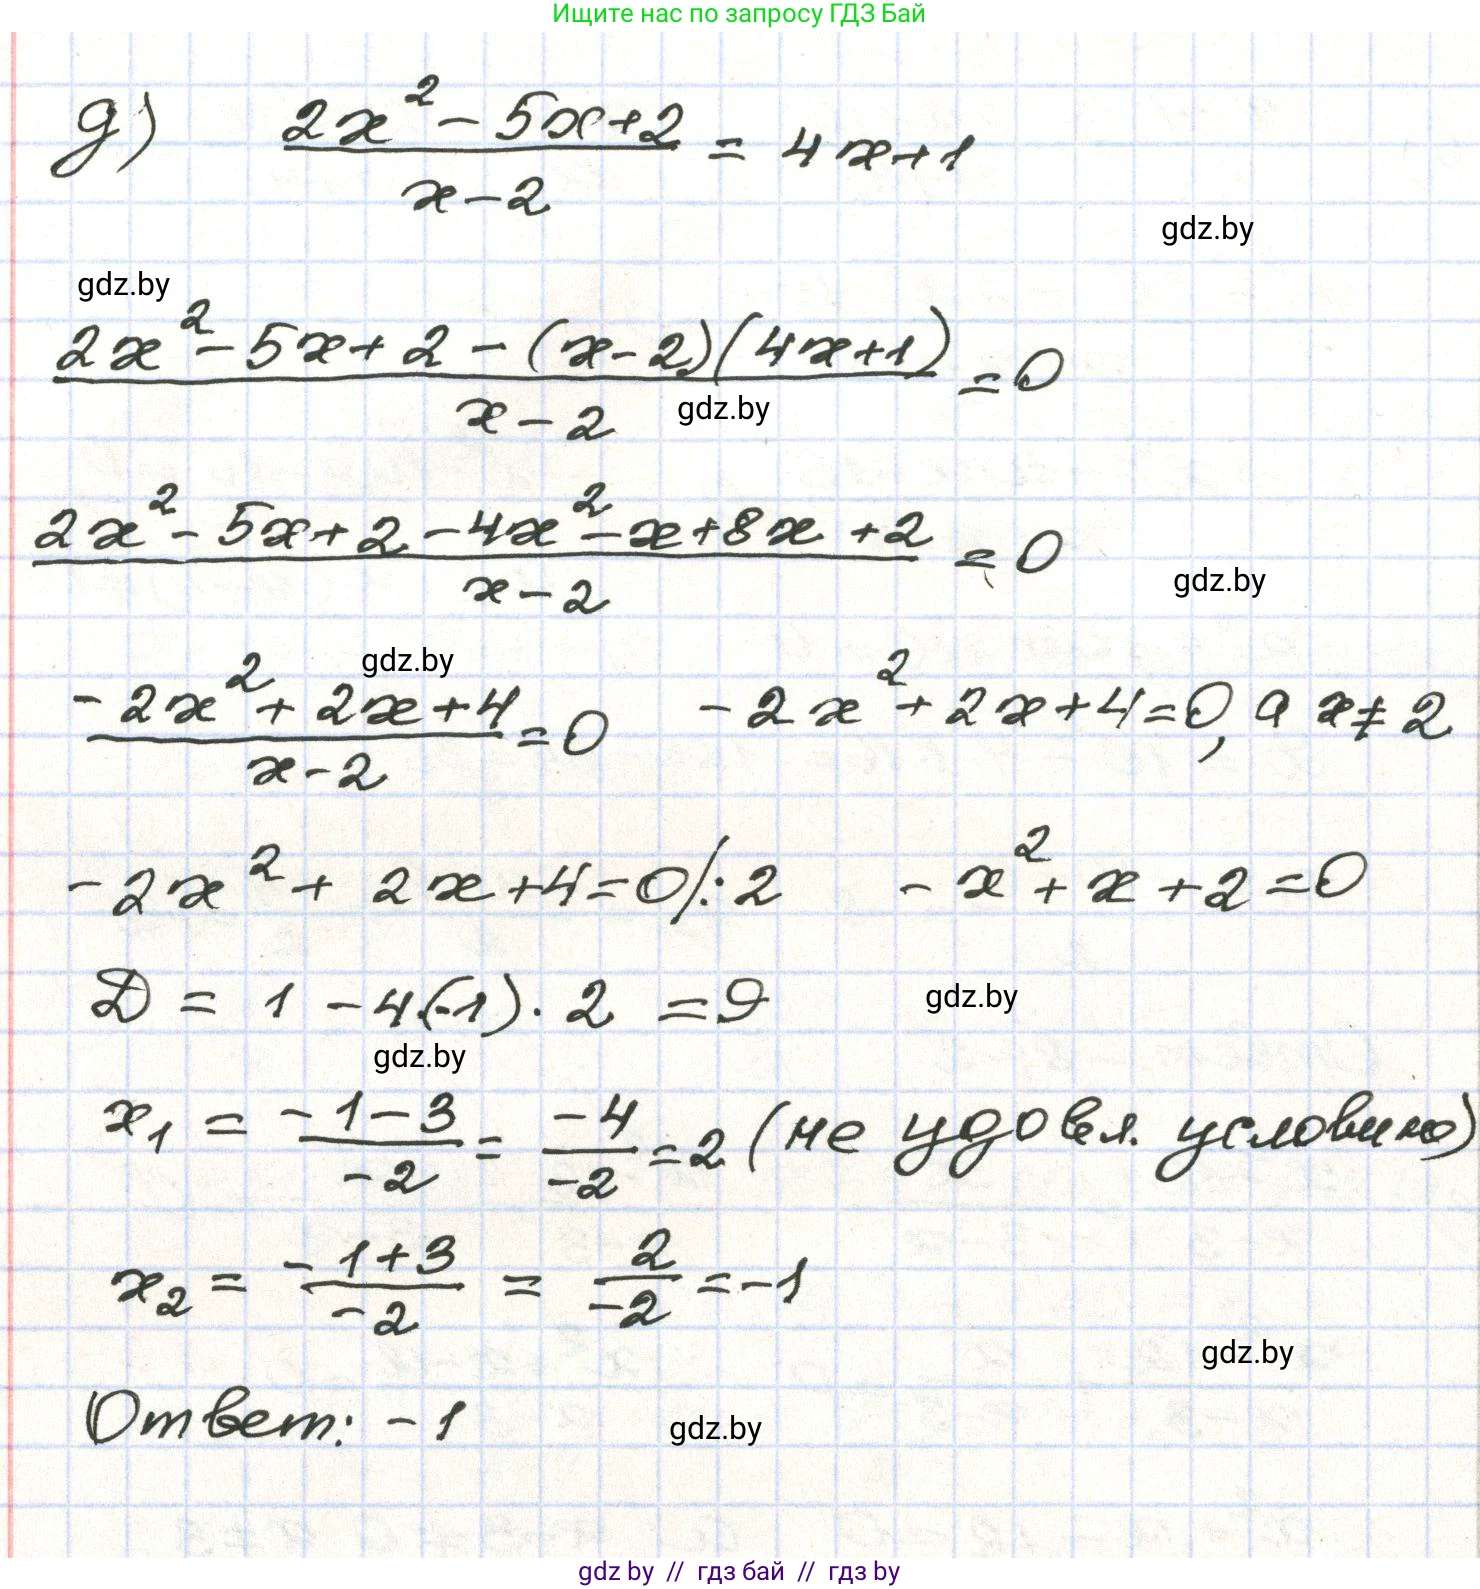 Ищите нас по запросу ГДЗ Бай
д) (2x² - 5x + 2)/(x - 2) = 4x + 1
gdz.by
gdz.by
(2x² - 5x + 2 - (x - 2)(4x + 1))/(x - 2) = 0
gdz.by
(2x² - 5x + 2 - 4x² - x + 8x + 2)/(x - 2) = 0
gdz.by
gdz.by
(-2x² + 2x + 4)/(x - 2) = 0 -2x² + 2x + 4 = 0, а x ≠ 2
-2x² + 2x + 4 = 0 /: 2 -x² + x + 2 = 0
D = 1 - 4·(-1)·2 = 9
gdz.by
gdz.by
x₁ = (-1 - 3)/(-2) = (-4)/(-2) = 2 (не удовл. условию)
x₂ = (-1 + 3)/(-2) = 2/(-2) = -1
gdz.by
Ответ: -1
gdz.by
gdz by // гдз бай // гдз by